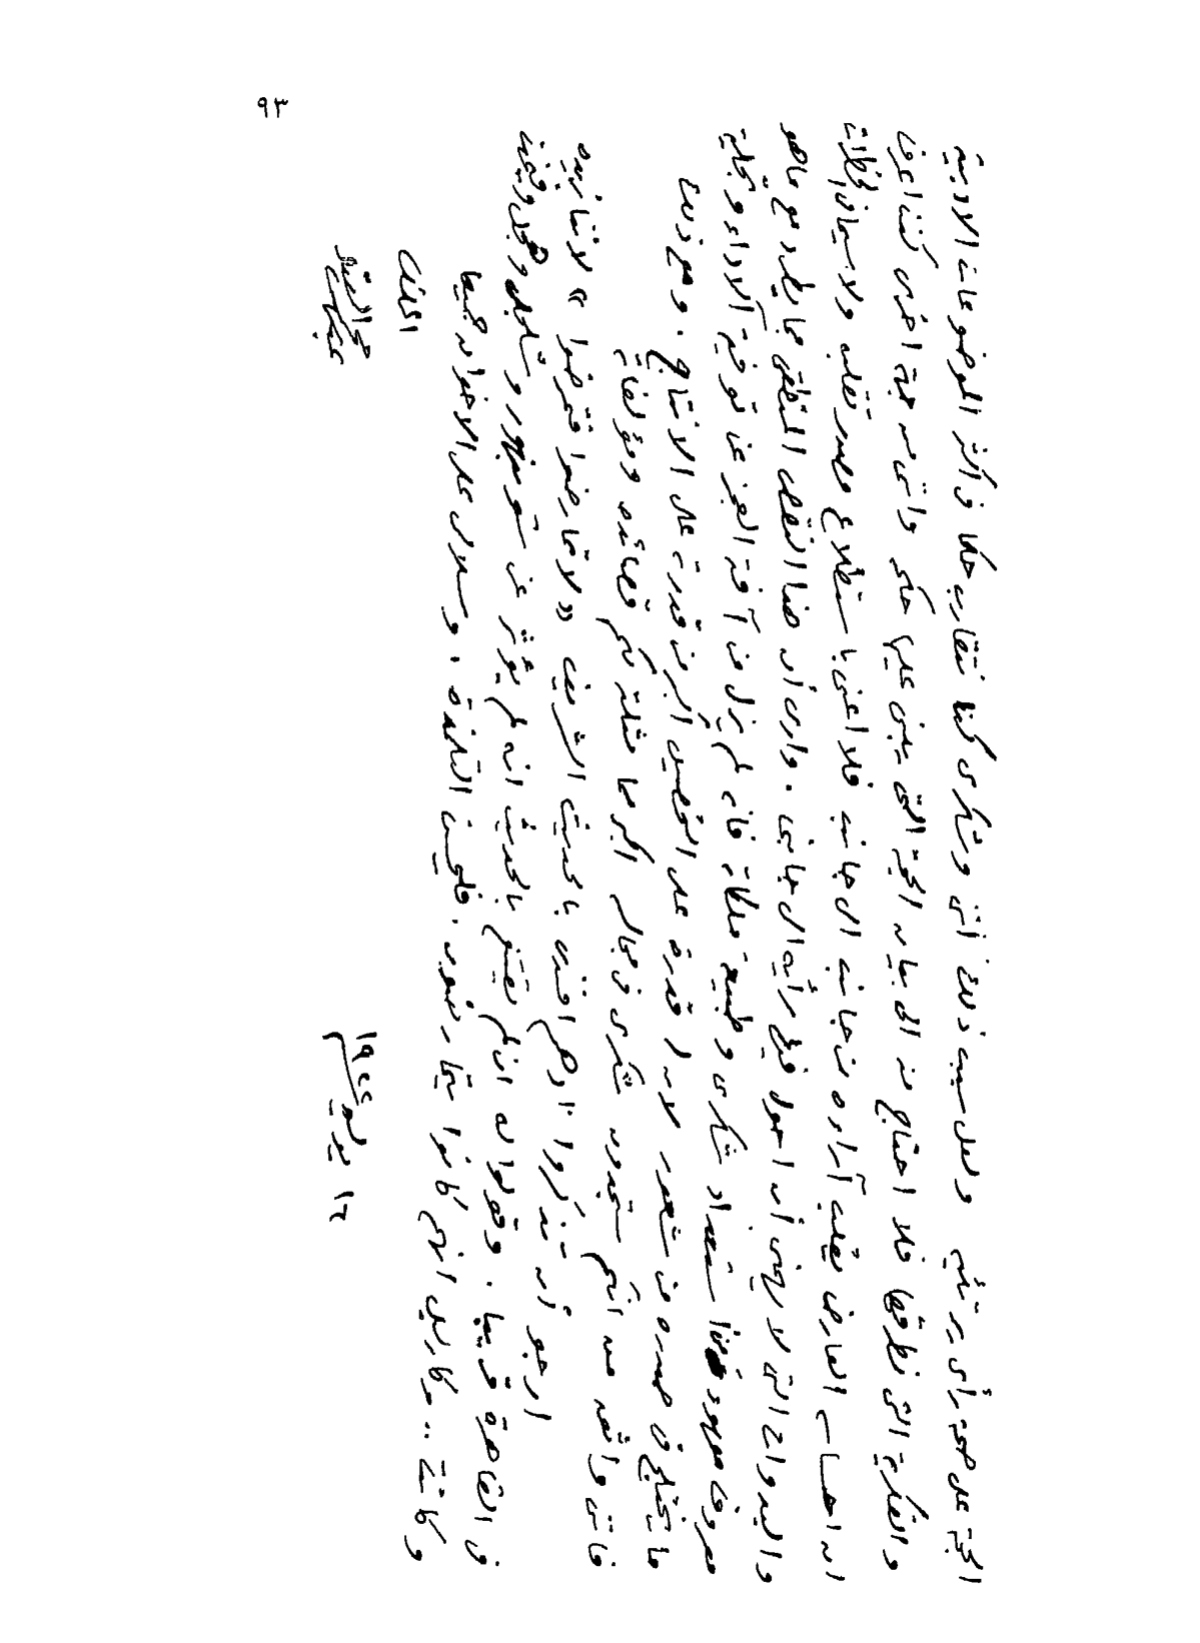 الحجة على صحة رأى يرتئيه ولعل سبب ذلك أننى وشكرى كنا نتقارب حكما فى أكثر الموضوعات الادبية
والفكرية التى نطرقها فلا احتاج منه الى بيان الحجة التى يبنى عليها حكمه وأننى من جهة اخرى كنت اعرف
ان احساس العارض يقلب آراءه من جانب الى جانب فلا اعنى باستطلاع مصدر تقلبه ولا سيما فى الخطرات
والبدوات التى لا يعنينى أن احول فيها رأيه الى جانبى . وارى أن هذا النقص المنطقى مما يطرد مع ما هو
معروف معهود من استعداد شكرى وطبيعة ملكاته فانه لم يزل من آفته العجز عن توفية الاداء وتجلية
ما يختلج فى صدره من شعور لا قدرة على التمحيص أكبر من قدرته على الانتاج . ومع ذلك
فاننى واثق من انكم ستجدون شكرى فى مجاله اكبرها مثلته لكم قصائده ومؤلفاته
ارجو أن تذكروا ادهم افندى بالحديث الشريف « لا تمارضوا فتمرضوا » لاننا نريده
فى القاهرة قريبا . وقولوا له ان لم يقتنع بالحديث انه لم يؤثر عن شوبنهور وشلوبل وهيجل وفخت
وكانت .. وكارليل انهم كانوا يتمارضون . فليحسن التلمذة . وسلامى على الاخوان جميعا
المخلص
عباس محمود العقاد
١٢ يونيو سنة ١٩٤٤
٩٣